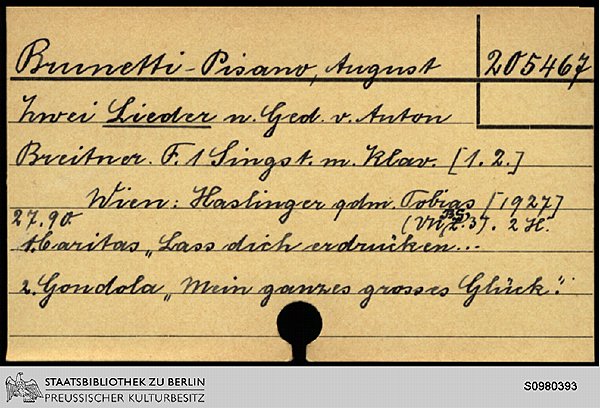 Brunetti-Pisano, August
205467
Zwei Lieder n. Ged. v. Anton
Breitner. F. 1 Singst. m. Klav. [1. 2.]
Wien: Haslinger qdm. Tobias [1927]
27.90. 2 H.
1. Caritas „Lass dich erdrücken...
2. Gondola „Mein ganzes grosses Glück".
STAATSBIBLIOTHEK ZU BERLIN
PREUSSISCHER KULTURBESITZ
S0980393